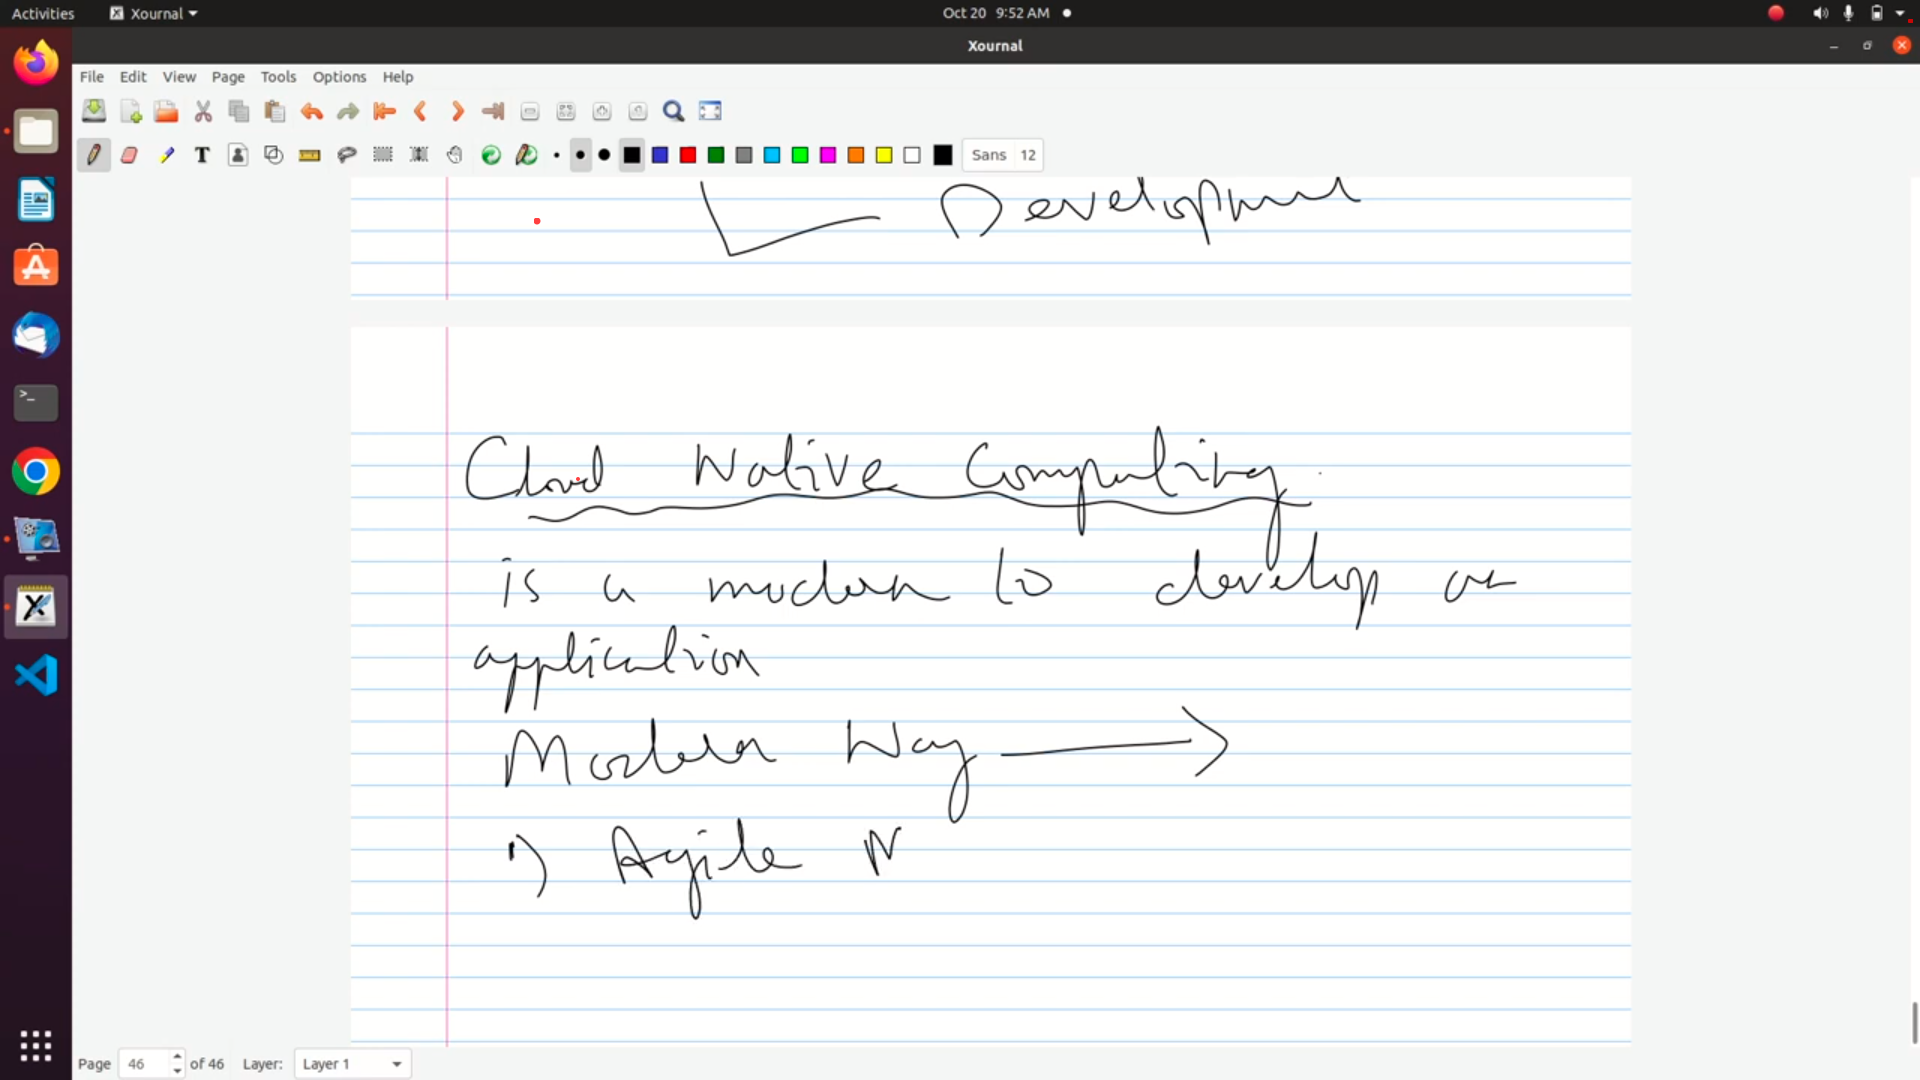 Activities Xournal Oct 20 9:52 AM
Xournal
File Edit View Page Tools Options Help
Sans 12
Development
Cloud Native Computing
is a modern to develop an
application
Modern Way
1) Agile
Page 46 of 46 Layer: Layer 1